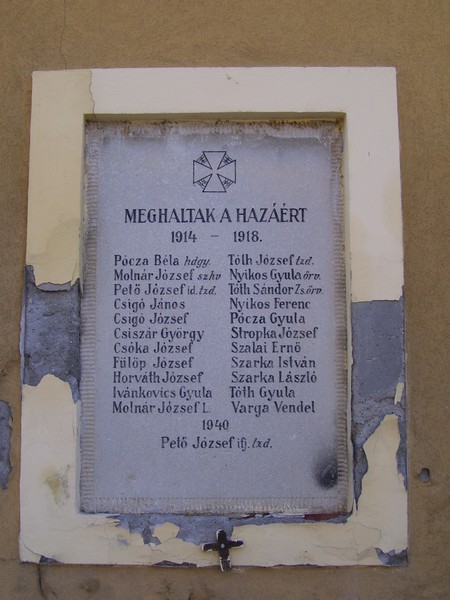 MEGHALTAK A HAZÁÉRT
1914 – 1918.
Pócza Béla hdgy. Tóth József tzd.
Molnár József szkv Nyikos Gyula őrv.
Pető József id. tzd. Tóth Sándor Zs. őrv.
Csigó János Nyikos Ferenc
Csigó József Pócza Gyula
Csiszár György Stropka József
Csóka József Szalai Ernő
Fülöp József Szarka István
Horváth József Szarka László
Ivánkovics Gyula Tóth Gyula
Molnár József I. Varga Vendel
1940
Pető József ifj. tzd.